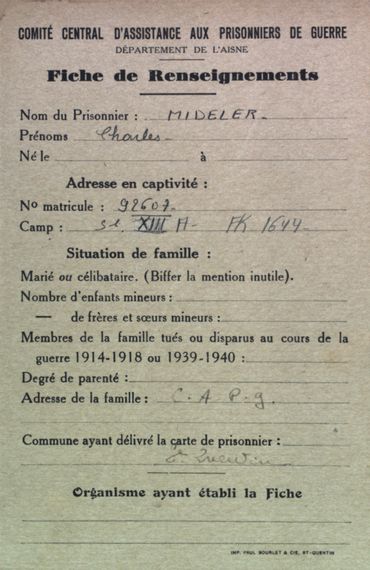 COMITÉ CENTRAL D'ASSISTANCE AUX PRISONNIERS DE GUERRE
DÉPARTEMENT DE L'AISNE
Fiche de Renseignements
Nom du Prisonnier : MIDELER
Prénoms Charles
Né le à
Adresse en captivité :
No matricule : 92607
Camp : St. XIII A - AK 1644
Situation de famille :
Marié ou célibataire. (Biffer la mention inutile).
Nombre d'enfants mineurs :
— de frères et sœurs mineurs :
Membres de la famille tués ou disparus au cours de la
guerre 1914-1918 ou 1939-1940 :
Degré de parenté :
Adresse de la famille : C. A P. g.
Commune ayant délivré la carte de prisonnier :
St Quentin
Organisme ayant établi la Fiche
IMP. PAUL BOURLET & CIE, ST-QUENTIN